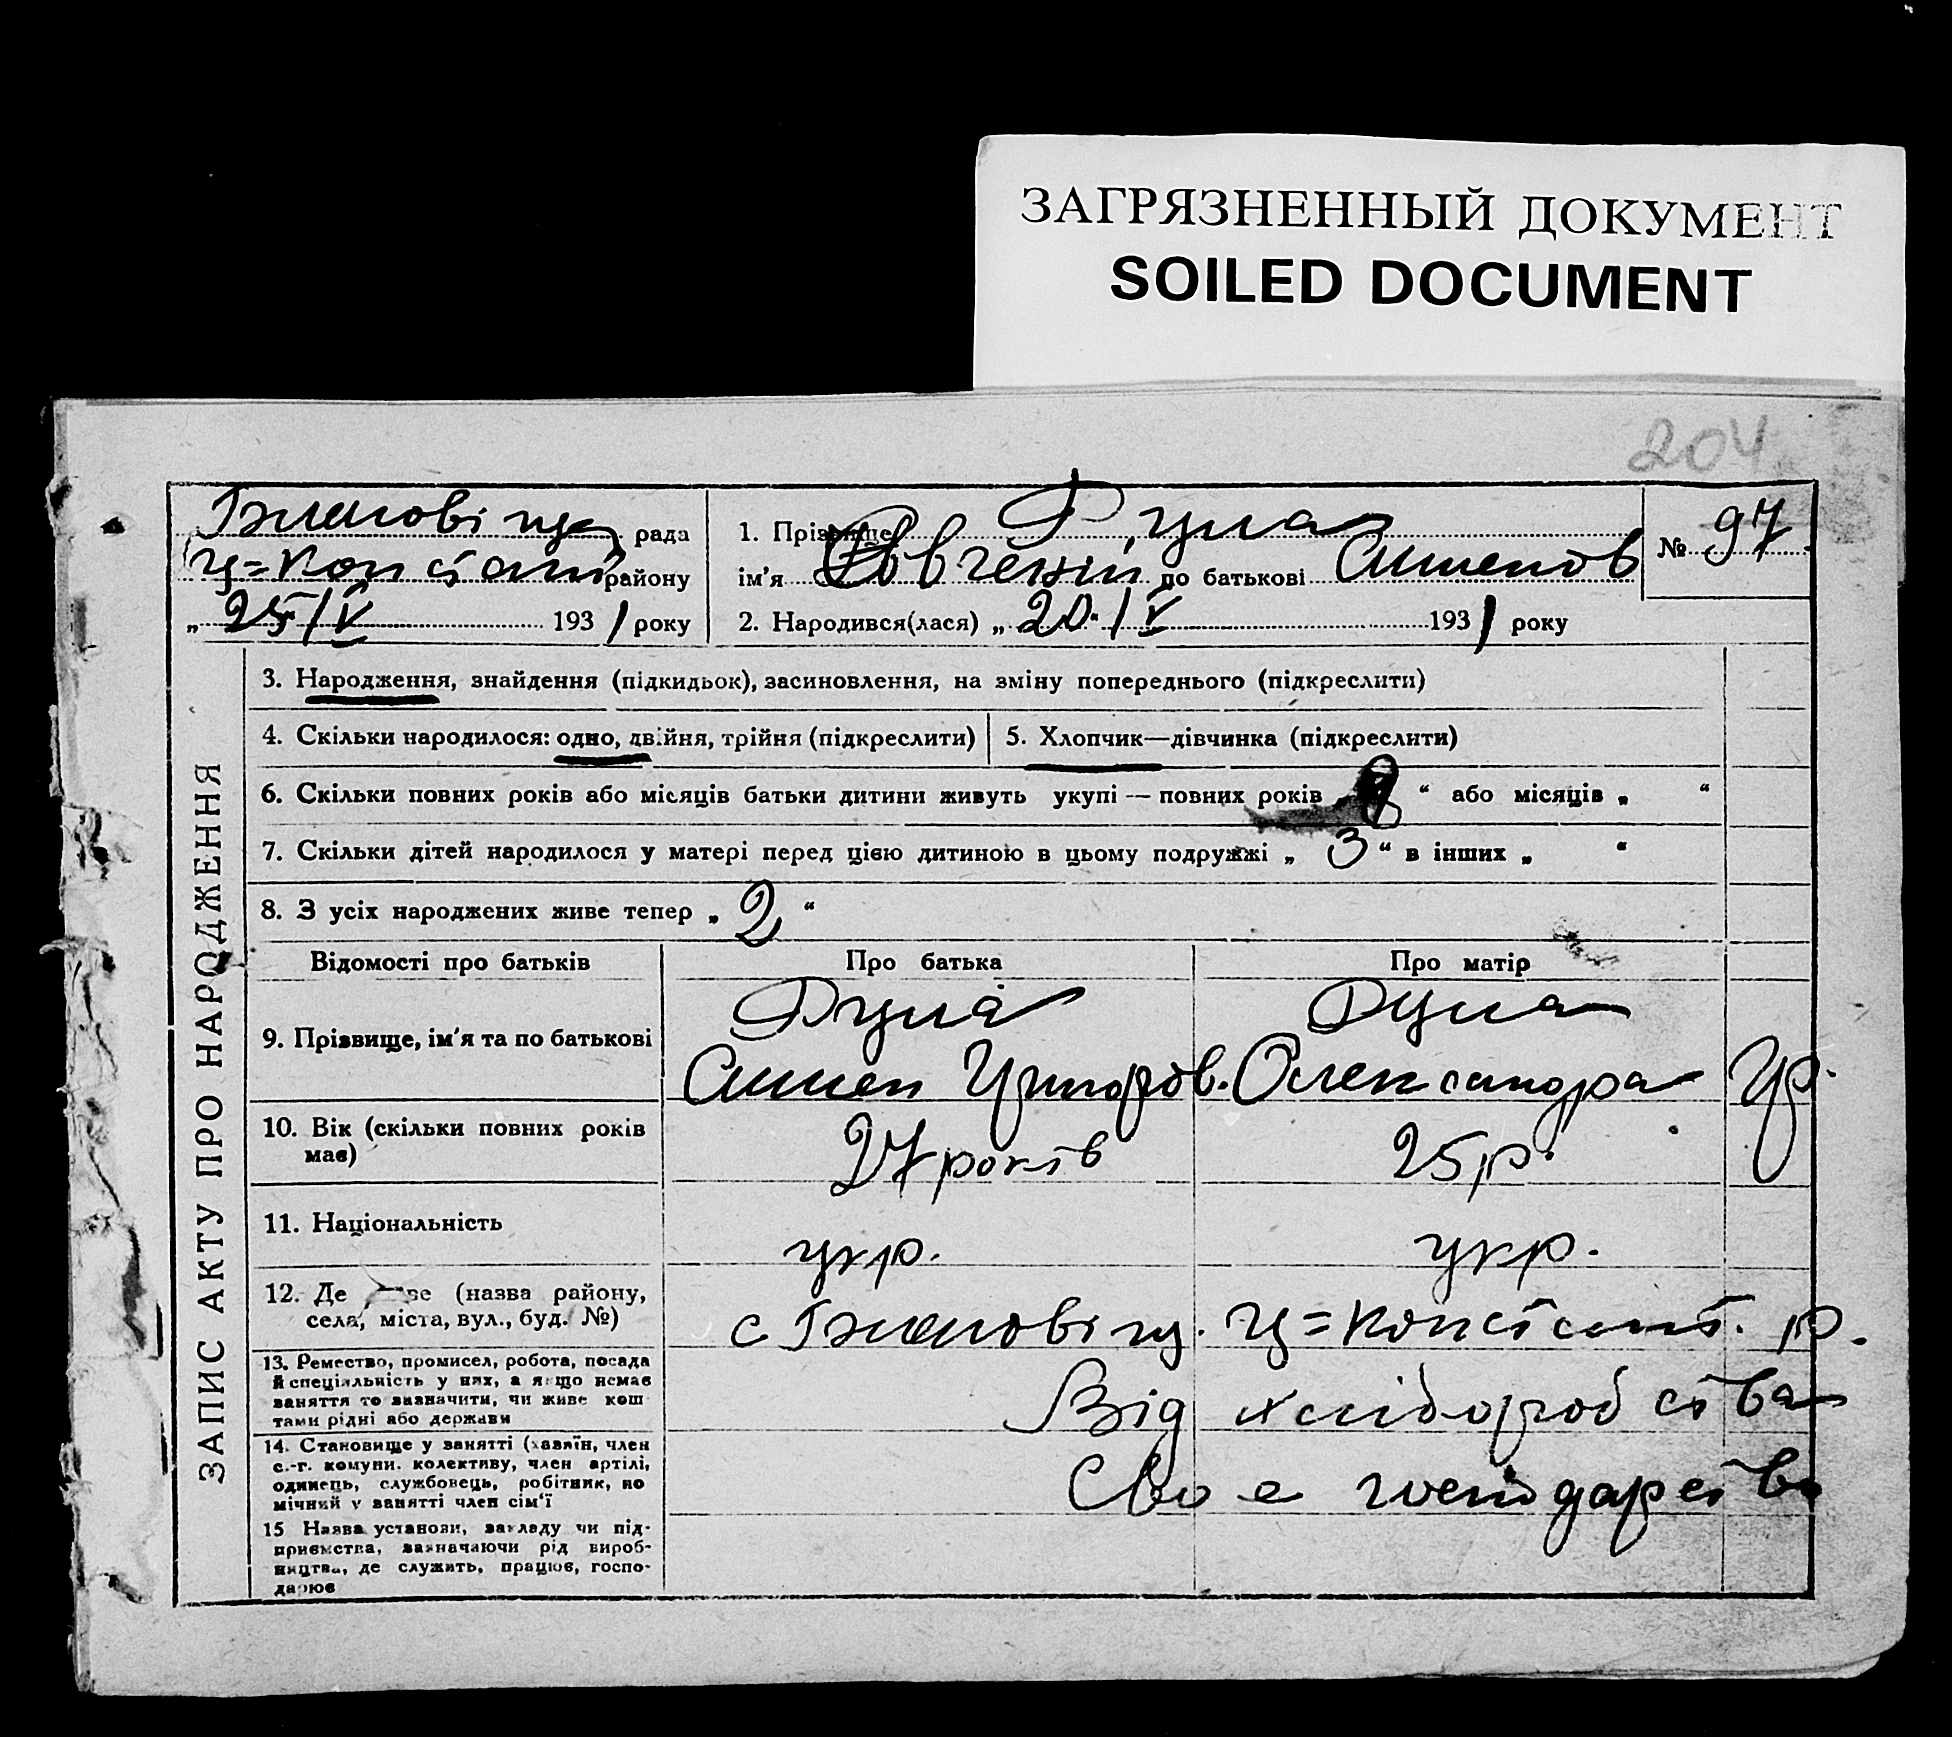 ЗАГРЯЗНЕННЫЙ ДОКУМЕНТ
SOILED DOCUMENT
204
рада
району
„ 25/IV 1931 року
1. Прізвище
ім'я Євгеній по батькові Сименов
2. Народився(лася) „ 20 “ IV 1931 року
№ 97
ЗАПИС АКТУ ПРО НАРОДЖЕННЯ
3. Народження, знайдення (підкидьок), засиновлення, на зміну попереднього (підкреслити)
4. Скільки народилося: одно, двійня, трійня (підкреслити)
5. Хлопчик—дівчинка (підкреслити)
6. Скільки повних років або місяців батьки дитини живуть укупі — повних років „ 8 “ або місяців „ “
7. Скільки дітей народилося у матері перед цією дитиною в цьому подружжі „ 3 “ в інших „ “
8. З усіх народжених живе тепер „ 2 “
Відомості про батьків
Про батька
Про матір
9. Прізвище, ім'я та по батькові
Симен
Олександра Гр.
10. Вік (скільки повних років
має)
27 років
25 р.
11. Національність
укр.
укр.
12. Де живе (назва району,
села, міста, вул., буд. №)
с.
р.
13. Ремество, промисел, робота, посада
й спеціяльність у них, а якщо немає
заняття то зазначити, чи живе кош
тами рідні або держави
Від хліборобства
14. Становище у занятті (хазяїн, член
с.-г. комуни, колективу, член артілі,
одинець, службовець, робітник, по
мічний у занятті член сім'ї
Своє господарство
15 Назва установи, закладу чи під-
приємства, зазначаючи рід вироб-
ництва, де служить, працює, госпо-
дарює